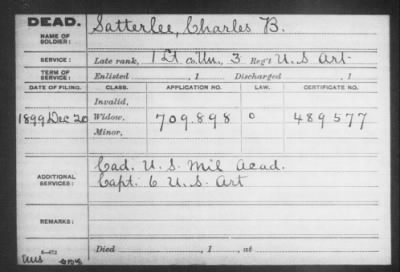 DEAD. Satterlee, Charles B.
NAME OF SOLDIER:
SERVICE: Late rank, 1 Lt Co. Un., 3 Reg't U.S Art
TERM OF SERVICE: Enlisted , 1 Discharged , 1
DATE OF FILING. CLASS. APPLICATION NO. LAW. CERTIFICATE NO.
Invalid,
1899 Dec 20 Widow, 709.898 O 489577
Minor,
ADDITIONAL SERVICES: Cad. U.S. Mil Acad.
Capt. 6 U.S. Art
REMARKS:
Died , 1 , at